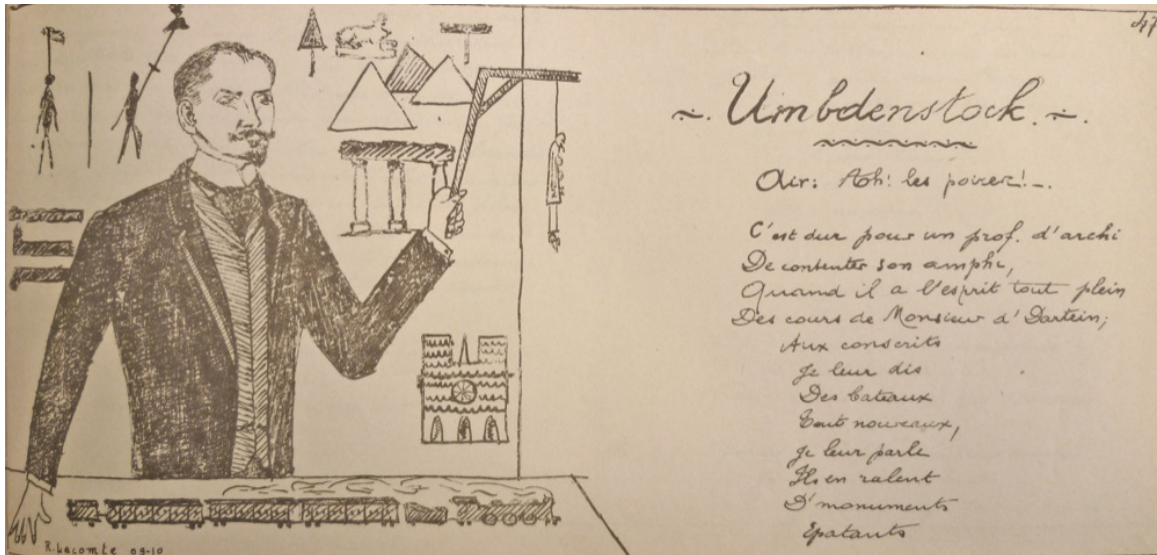 047
~. Umbdenstock. ~.
Air: Ah! les poires!_.
C'est dur pour un prof. d'archi
De contenter son amphi,
Quand il a l'esprit tout plein
Des cours de Monsieur d'Dartein;
Aux conscrits
Je leur dis
Des bateaux
Tout nouveaux,
Je leur parle
Ils en ralent
D'monuments
Epatants
R. Lecomte 09-10